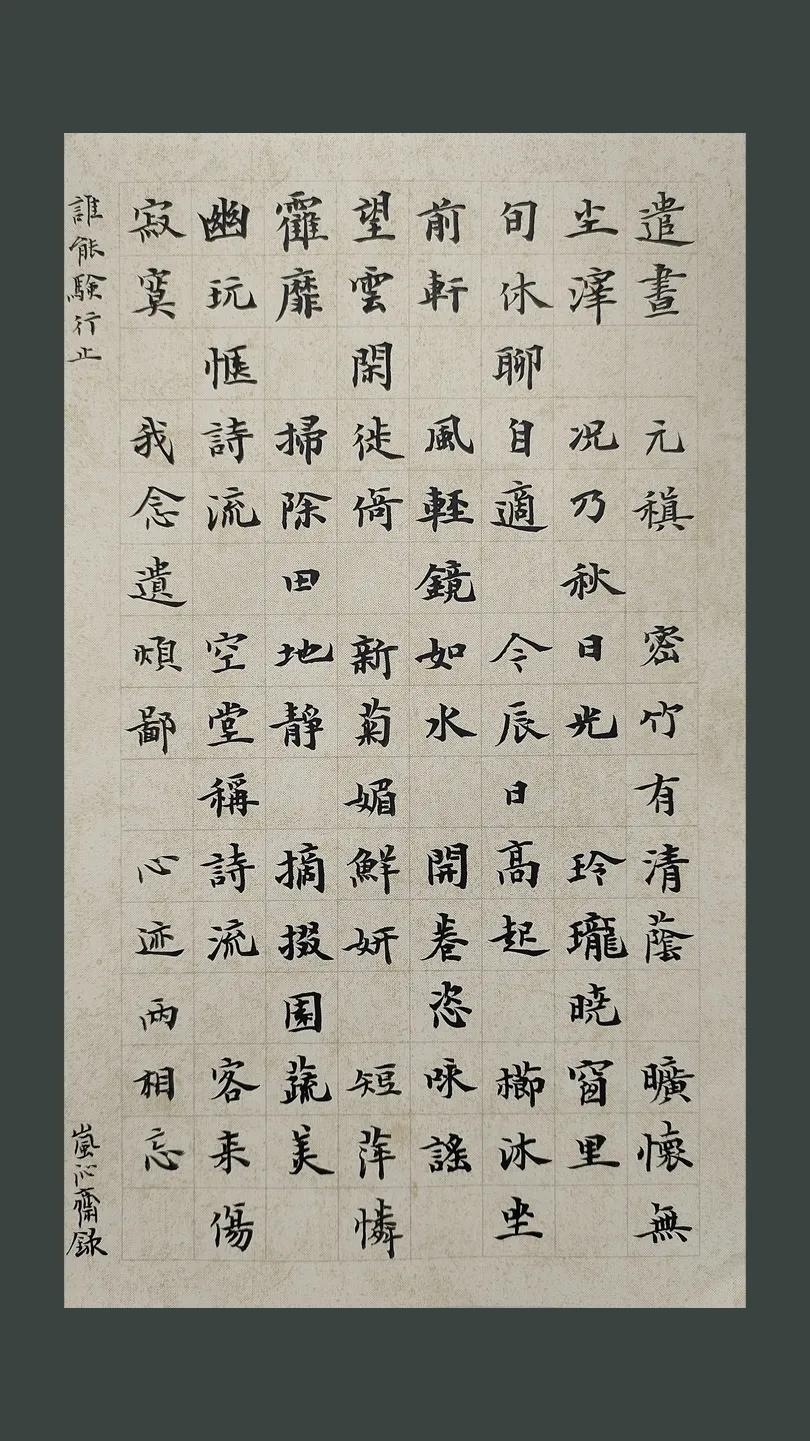 遣晝 元稹 密竹有清蔭 曠懷無
尘滓 况乃秋日光 玲瓏暁窗里
旬休聊自適 令辰日高起 櫛沐坐
前軒 風輕鏡如水 開卷恣咏謠
望雲閑徙倚 新菊媚鮮妍 短萍憐
靃靡 掃除田地靜 摘掇園蔬美
幽玩惬詩流 空堂稱詩流 客来傷
寂寞 我念遺煩鄙 心迹兩相忘
誰能験行止 嵐沁齋録